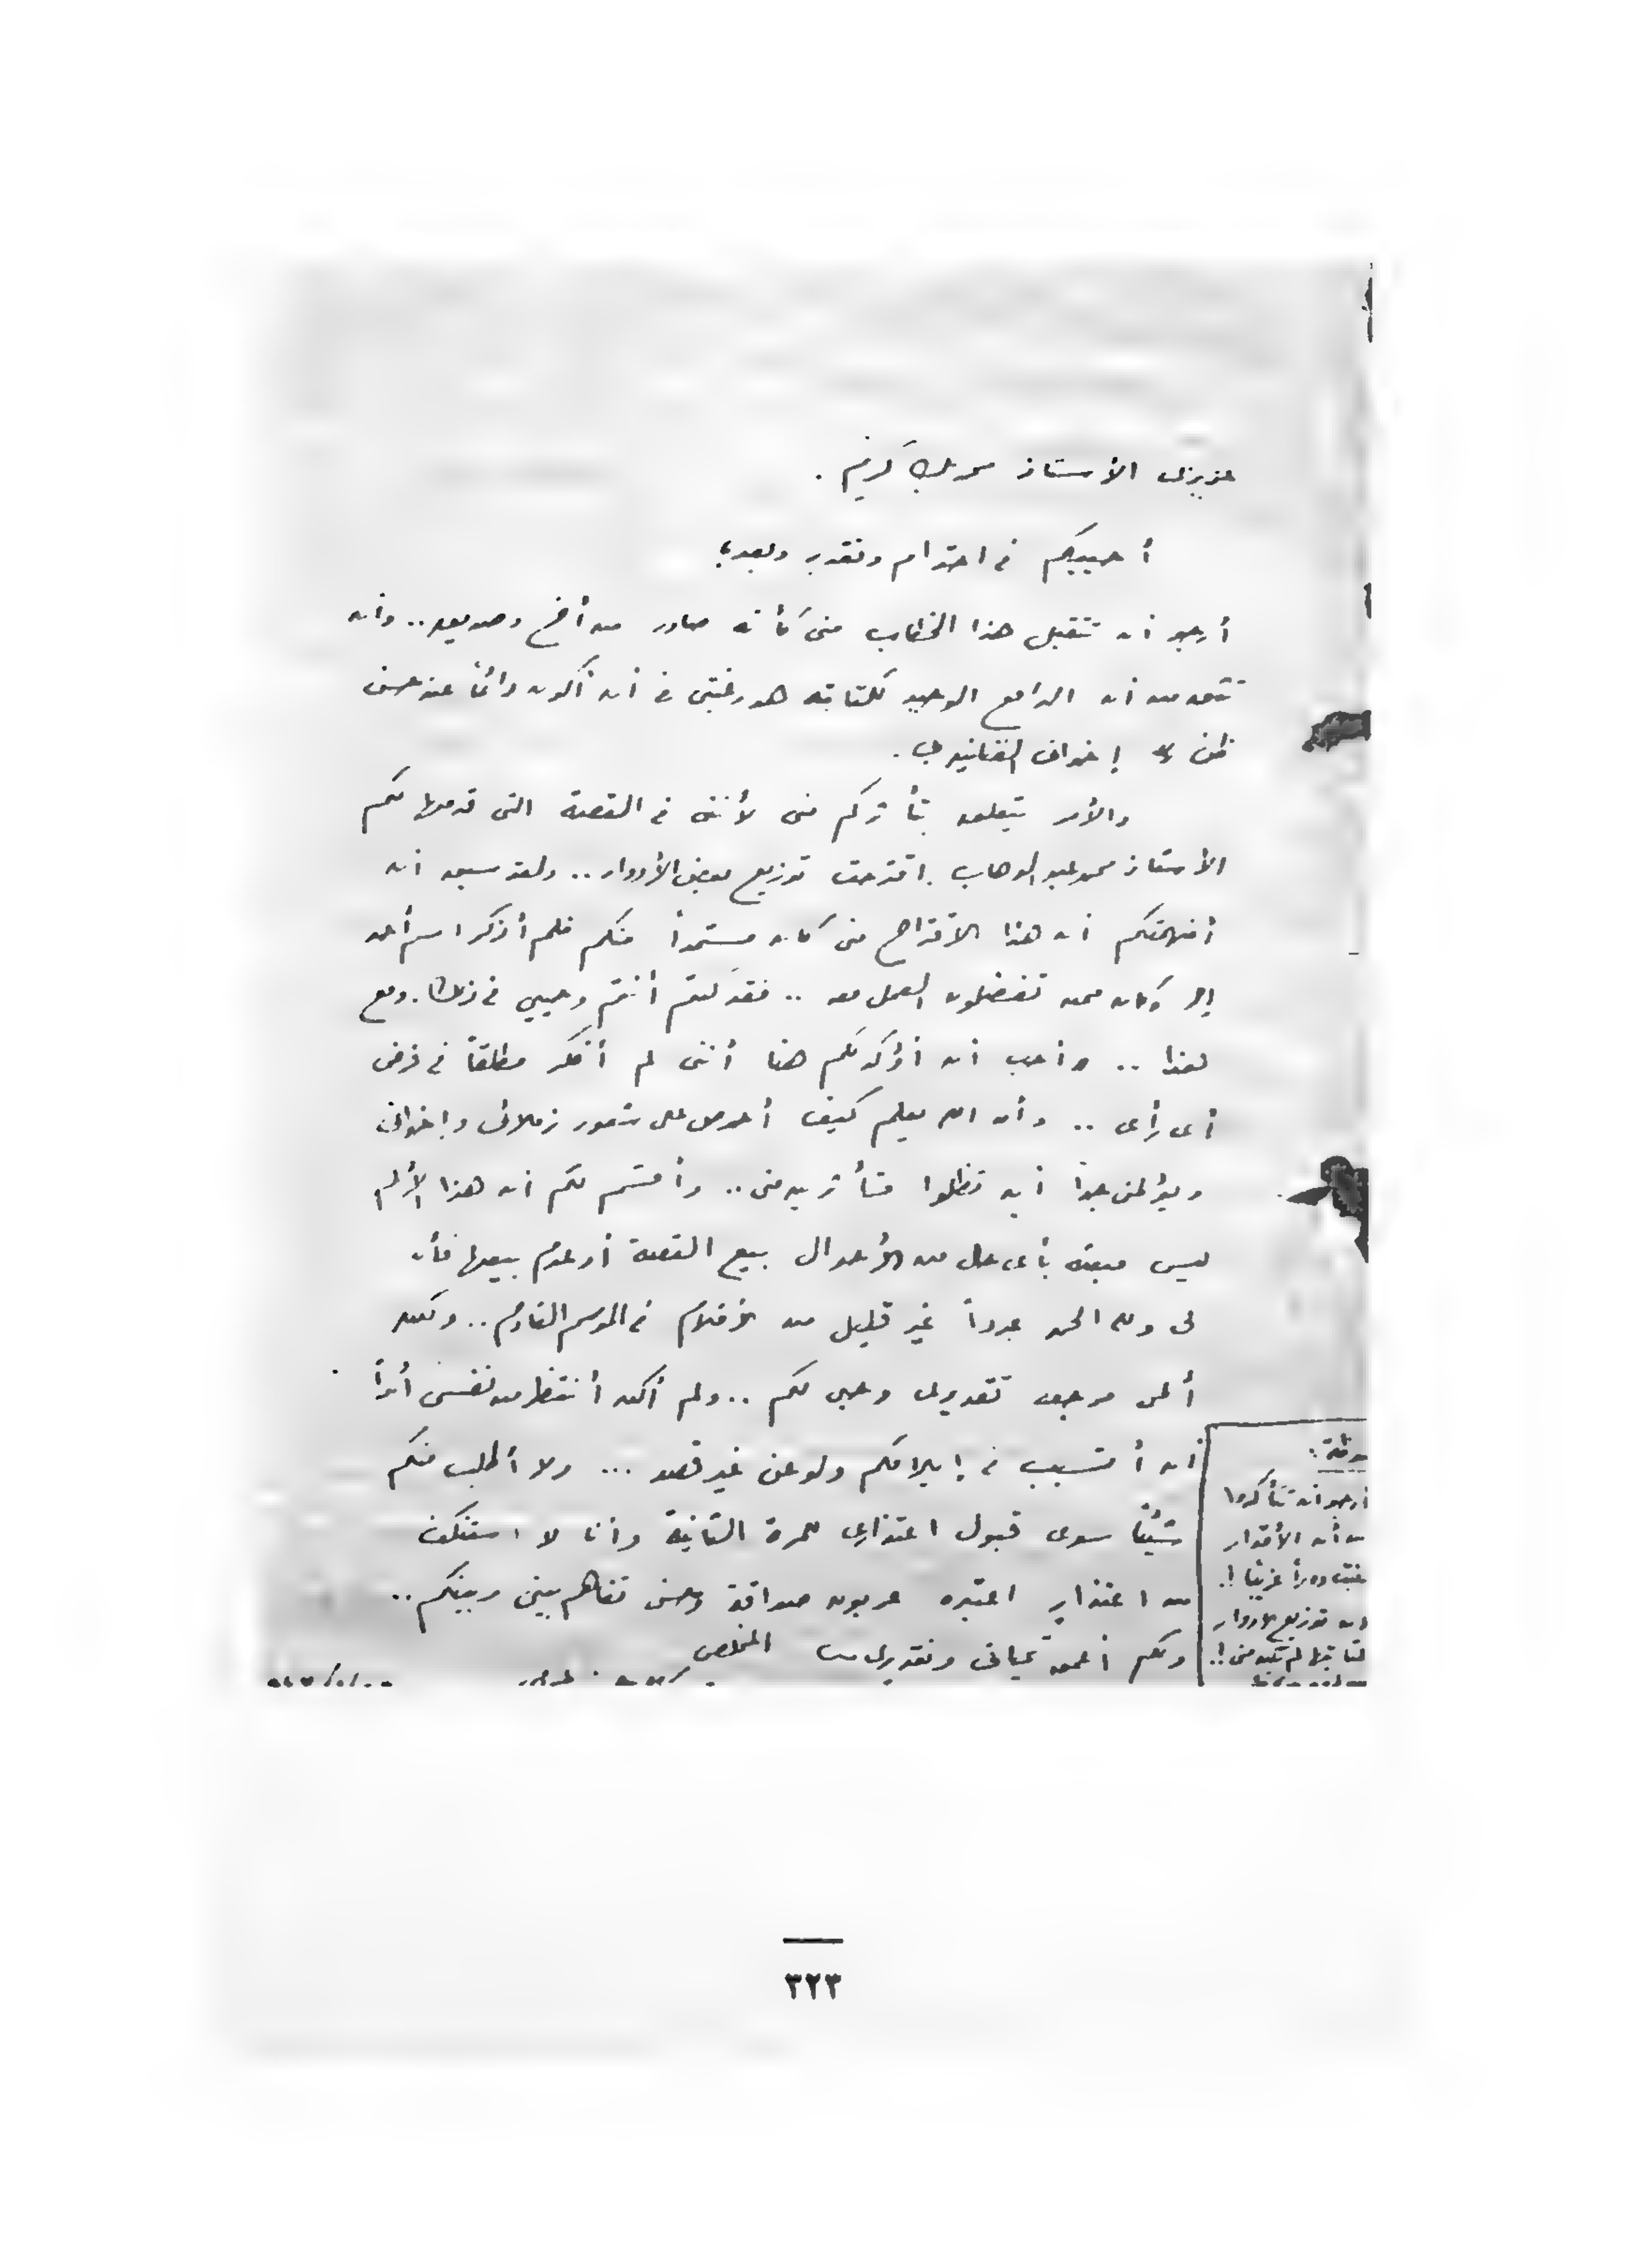 عزيزى الأستاذ محمد بك كريم .
أحييكم فى احترام وتقدير وبعد ؛
أرجو أن تتقبل هذا الخطاب منى كأنه صادر من أخ وصديق .. وأن
تتحقق من أن الدافع الوحيد لكتابته هو رغبتى فى أن أكون دائماً عند حسن
ظن إخوانى الفنانين بى .
والأمر يتعلق بتأثركم منى لأننى فى القصة التى قدمها لكم
الأستاذ محمد عبد الوهاب اقترحت توزيع بعض الأدوار .. ولقد سبق أن
أفهمتكم أن هذا الاقتراح منى كان مستمداً منكم فلم أذكر اسم أحد
إلا وكان ممن تفضلون العمل معه .. فقد كنتم أنتم وحيي فى ذلك . ومع
هذا .. وأحب أن أؤكد لكم هنا أننى لم أفكر مطلقاً فى فرض
أى رأى .. وأن الله يعلم كيف أحرص على شعور زملائى وإخوانى
ويؤلمنى جداً أن تظلوا متأثرين منى .. وأقسم لكم أن هذا الألم
ليس مبعثه بأى حال من الأحوال بيع القصة أو عدم بيعها فأن
لى ولله الحمد عدداً غير قليل من الأفلام فى الموسم القادم .. ولكنه
ألمى مرجعه تقديرى وحبى لكم .. ولم أكن أنتظر من نفسى أبداً
أن أتسبب فى إيلامكم ولو عن غير قصد ... ولا أطلب منكم
شيئاً سوى قبول اعتذارى للمرة الثانية وأنا لا استنكف
من اعتذار اعتبره عربون صداقة وحسن تفاهم بينى وبينكم ..
ولكم أعمق تحياتى وتقديرى من المخلص
أرجو أن تتأكدوا
من أن الأقدار
دوراً غريباً !.
أن توزيع الأدوار
لم تكن منى !..
٣٢٣